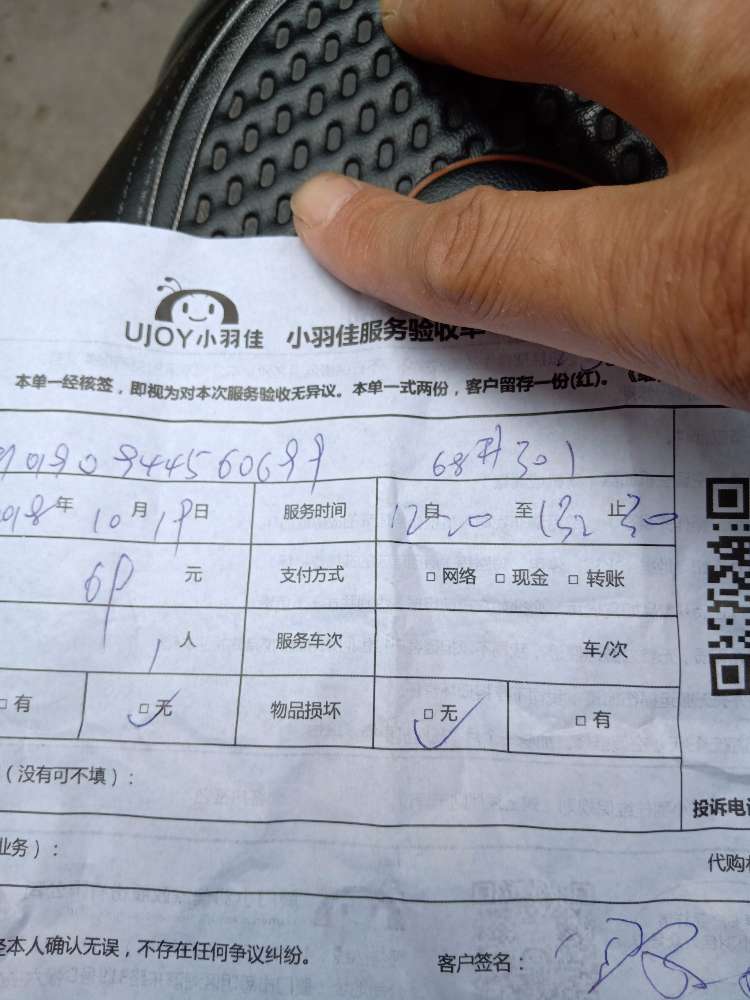 UJOY小羽佳 小羽佳服务验收单
本单一经核签，即视为对本次服务验收无异议。本单一式两份，客户留存一份(红)。
301
年 10 月 19 日 服务时间 12 自 20 至 13 30 止
69 元 支付方式 □ 网络 □ 现金 □ 转账
1 人 服务车次 车/次
□ 有 □ 无 物品损坏 □ 无 □ 有
（没有可不填）：
投诉电话
业务）：
代购
本人确认无误，不存在任何争议纠纷。
客户签名：